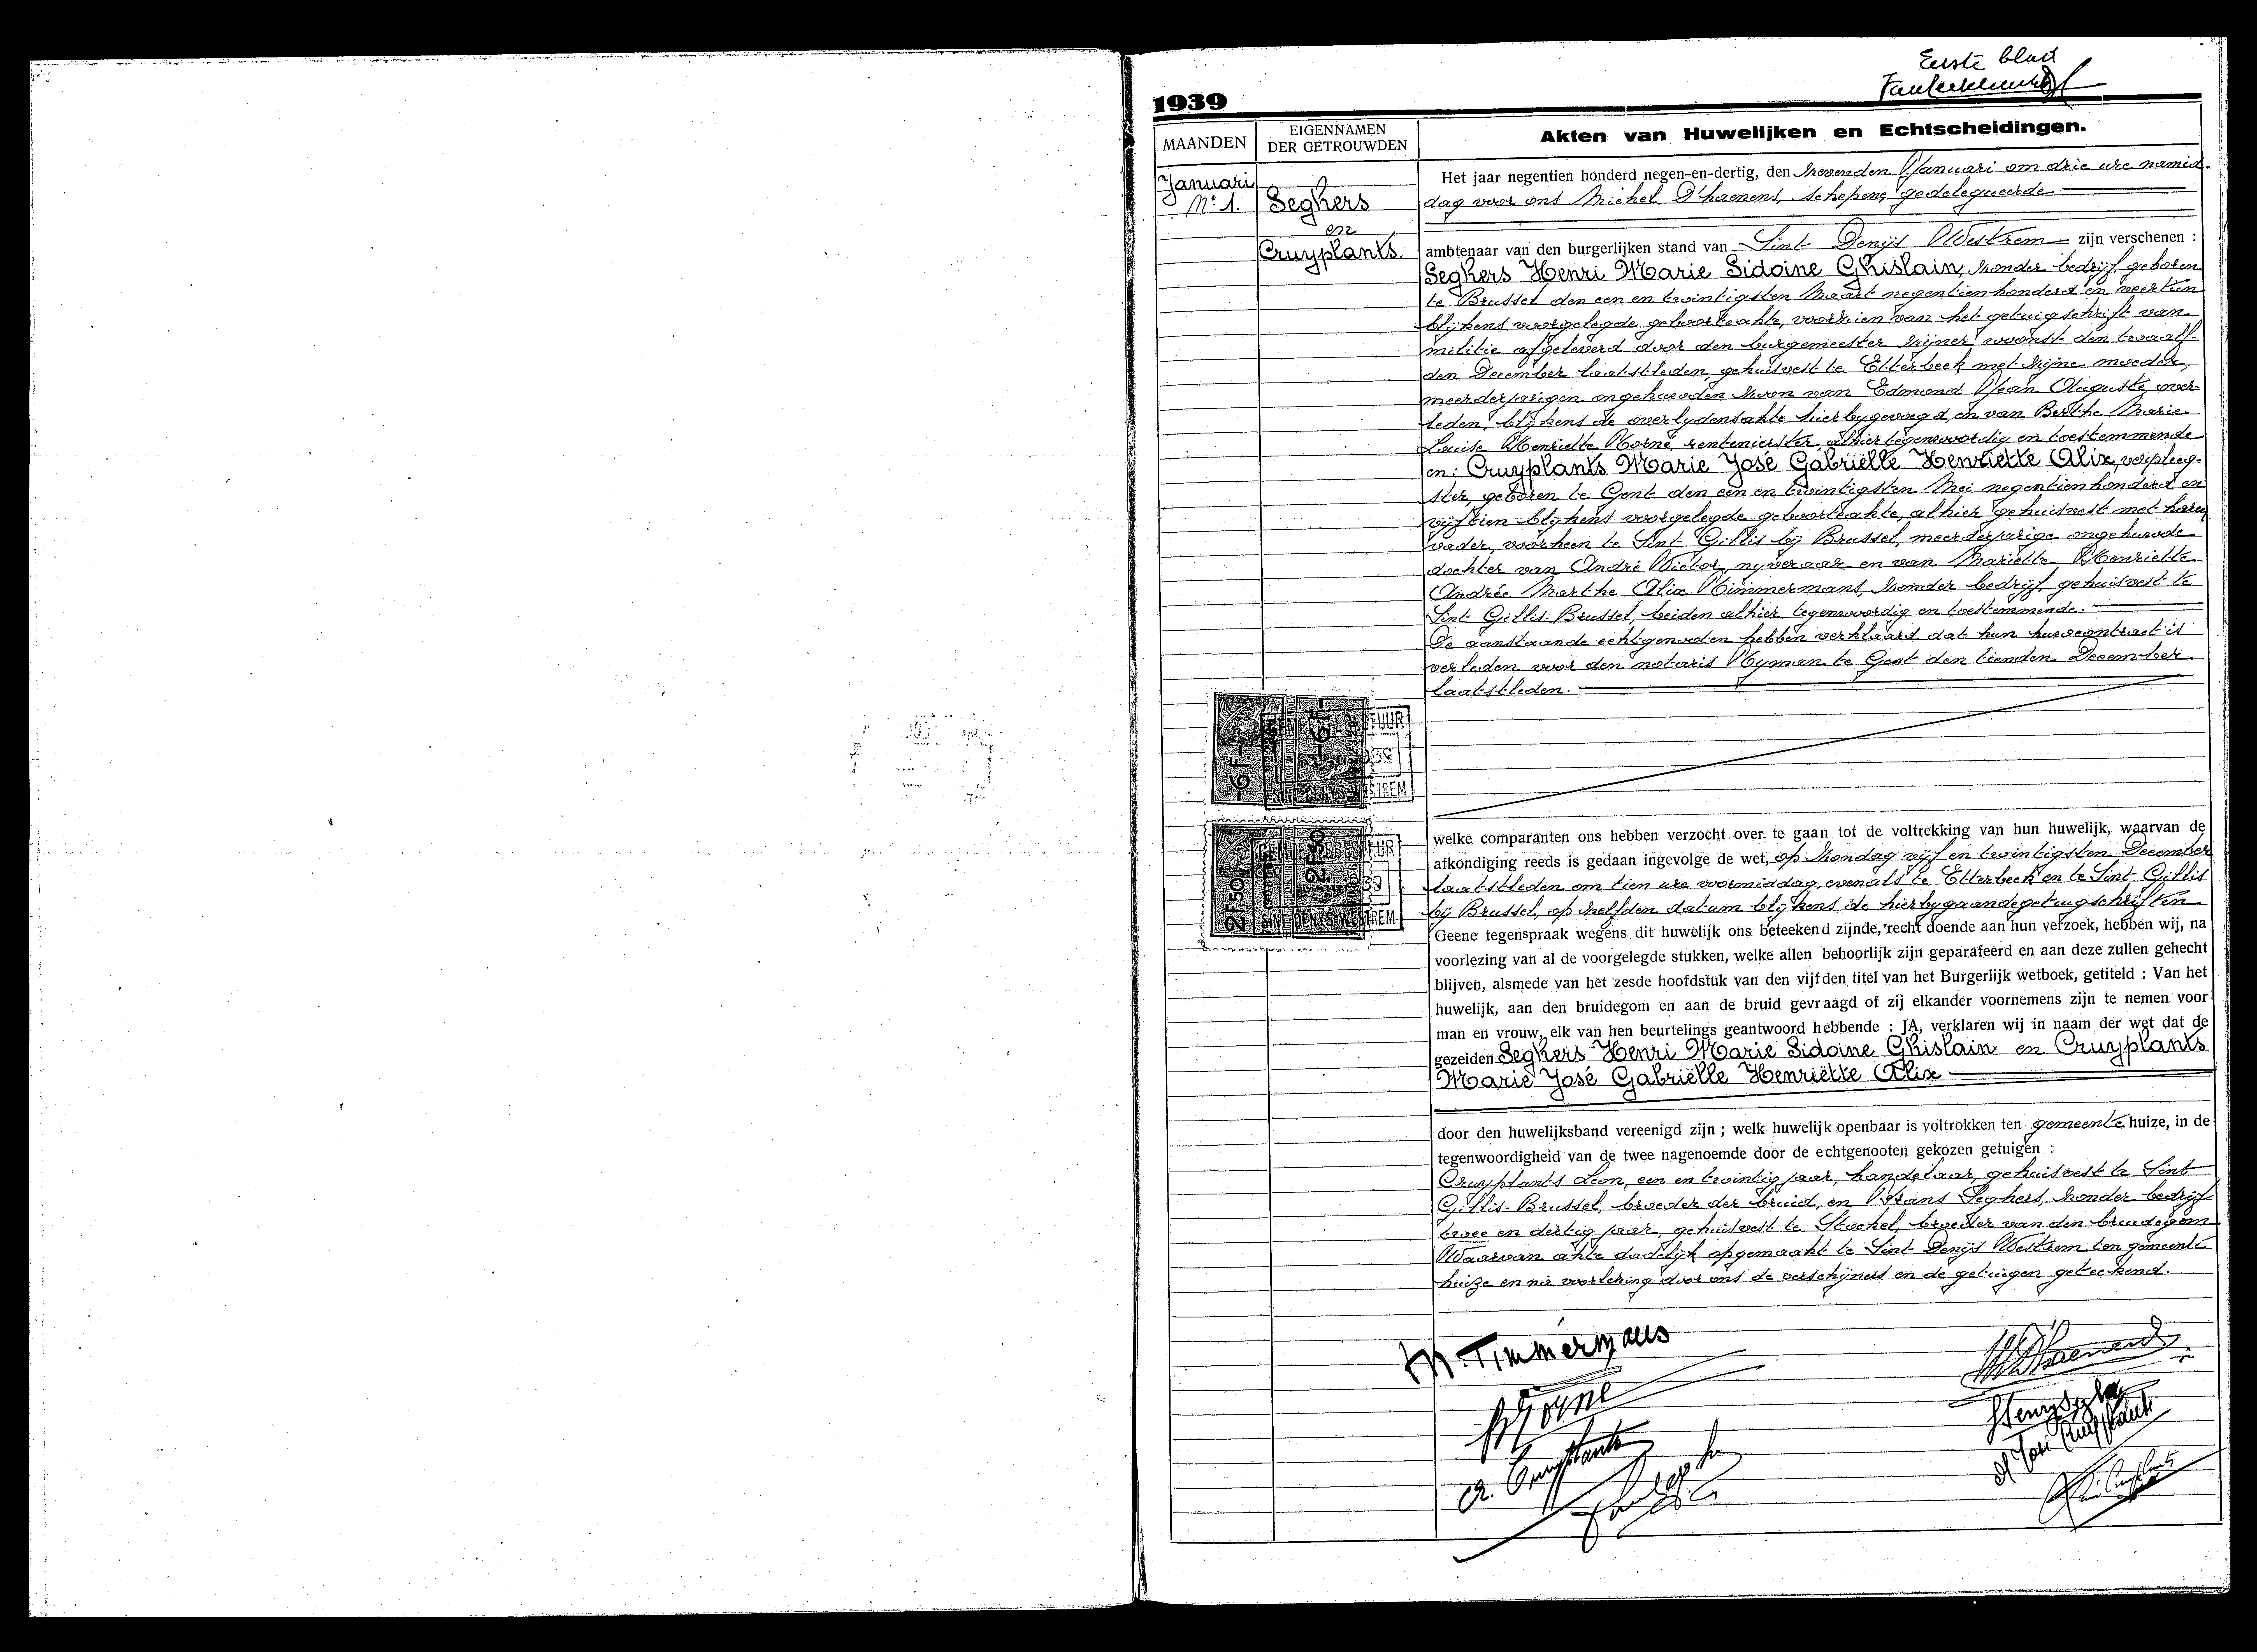 Eerste blad
1939
MAANDEN
EIGENNAMEN
DER GETROUWDEN
Akten van Huwelijken en Echtscheidingen.
Januari
No 1.
Seghers
en
Cruyplants.
Het jaar negentien honderd negen-en-dertig, den zevenden Januari om drie ure namid-
dag voor ons Michel D'haenens, schepene gedelegueerde
ambtenaar van den burgerlijken stand van Sint Denijs Westrem zijn verschenen :
Seghers Henri Marie Sidoine Ghislain, zonder bedrijf, geboren
te Brussel den een en twintigsten Maart negentienhonderd en veertien
blijkens voorgelegde geboorteakte, voorzien van het getuigschrift van
militie afgeleverd door den burgemeester zijner woonst den twaalf-
den December laatstleden, gehuisvest te Etterbeek met zijne moeder,
meerderjarigen ongehuwden zoon van Edmond Jean Auguste, over-
leden, blijkens de overlydensakte hierbygevoegd, en van Berthe Marie
Louise Henriette Horne, rentenierster, alhier tegenwoordig en toestemmende
en: Cruyplants Marie José Gabriëlle Henriëtte Alix, verpleeg-
ster, geboren te Gent den een en twintigsten Mei negentienhonderd en
vijftien blijkens voorgelegde geboorteakte, alhier gehuisvest met haren
vader, voorheen te Sint Gillis bij Brussel, meerderjarige ongehuwde
dochter van André Victor, nyveraar en van Mariette Henriette
Andrée Marthe Alix Timmermans, zonder bedrijf, gehuisvest te
Sint Gillis-Brussel, beiden alhier tegenwoordig en toestemmende.
De aanstaande echtgenoden hebben verklaard dat hun huwcontract is
verleden voor den notaris Hyman te Gent den tienden December
laatstleden.
6 F.
6 F.
SINT DENYS WESTREM
2F50
2F50
SINT DENYS WESTREM
welke comparanten ons hebben verzocht over te gaan tot de voltrekking van hun huwelijk, waarvan de
afkondiging reeds is gedaan ingevolge de wet, op Zondag vijf en twintigsten December
laatstleden om tien ure voormiddag, evenals te Etterbeek en te Sint Gillis
bij Brussel, op zelfden datum blijkens de hierbygaande getuigschriften
Geene tegenspraak wegens dit huwelijk ons beteekend zijnde, recht doende aan hun verzoek, hebben wij, na
voorlezing van al de voorgelegde stukken, welke allen behoorlijk zijn geparafeerd en aan deze zullen gehecht
blijven, alsmede van het zesde hoofdstuk van den vijfden titel van het Burgerlijk wetboek, getiteld : Van het
huwelijk, aan den bruidegom en aan de bruid gevraagd of zij elkander voornemens zijn te nemen voor
man en vrouw, elk van hen beurtelings geantwoord hebbende : JA, verklaren wij in naam der wet dat de
gezeiden Seghers Henri Marie Sidoine Ghislain en Cruyplants
Marie José Gabriëlle Henriëtte Alix
door den huwelijksband vereenigd zijn ; welk huwelijk openbaar is voltrokken ten gemeente huize, in de
tegenwoordigheid van de twee nagenoemde door de echtgenooten gekozen getuigen :
Cruyplants Leon, een en twintig jaar, handelaar, gehuisvest te Sint
Gillis-Brussel, broeder der bruid, en Frans Seghers, zonder bedrijf
twee en dertig jaar, gehuisvest te Stockel, broeder van den bruidegom
Waarvan akte dadelijk opgemaakt te Sint Denijs Westrem ten gemeente
huize en na voorlezing door ons de verschijners en de getuigen geteekend.
M. Timmermans
A. Cruyplants
M José Cruyplants